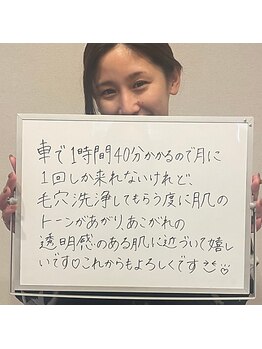 車で1時間40分かかるので月に
1回しか来れないけれど、
毛穴洗浄してもらう度に肌の
トーンがあがり、あこがれの
透明感のある肌に近づいて嬉し
いです♡これからもよろしくです♡